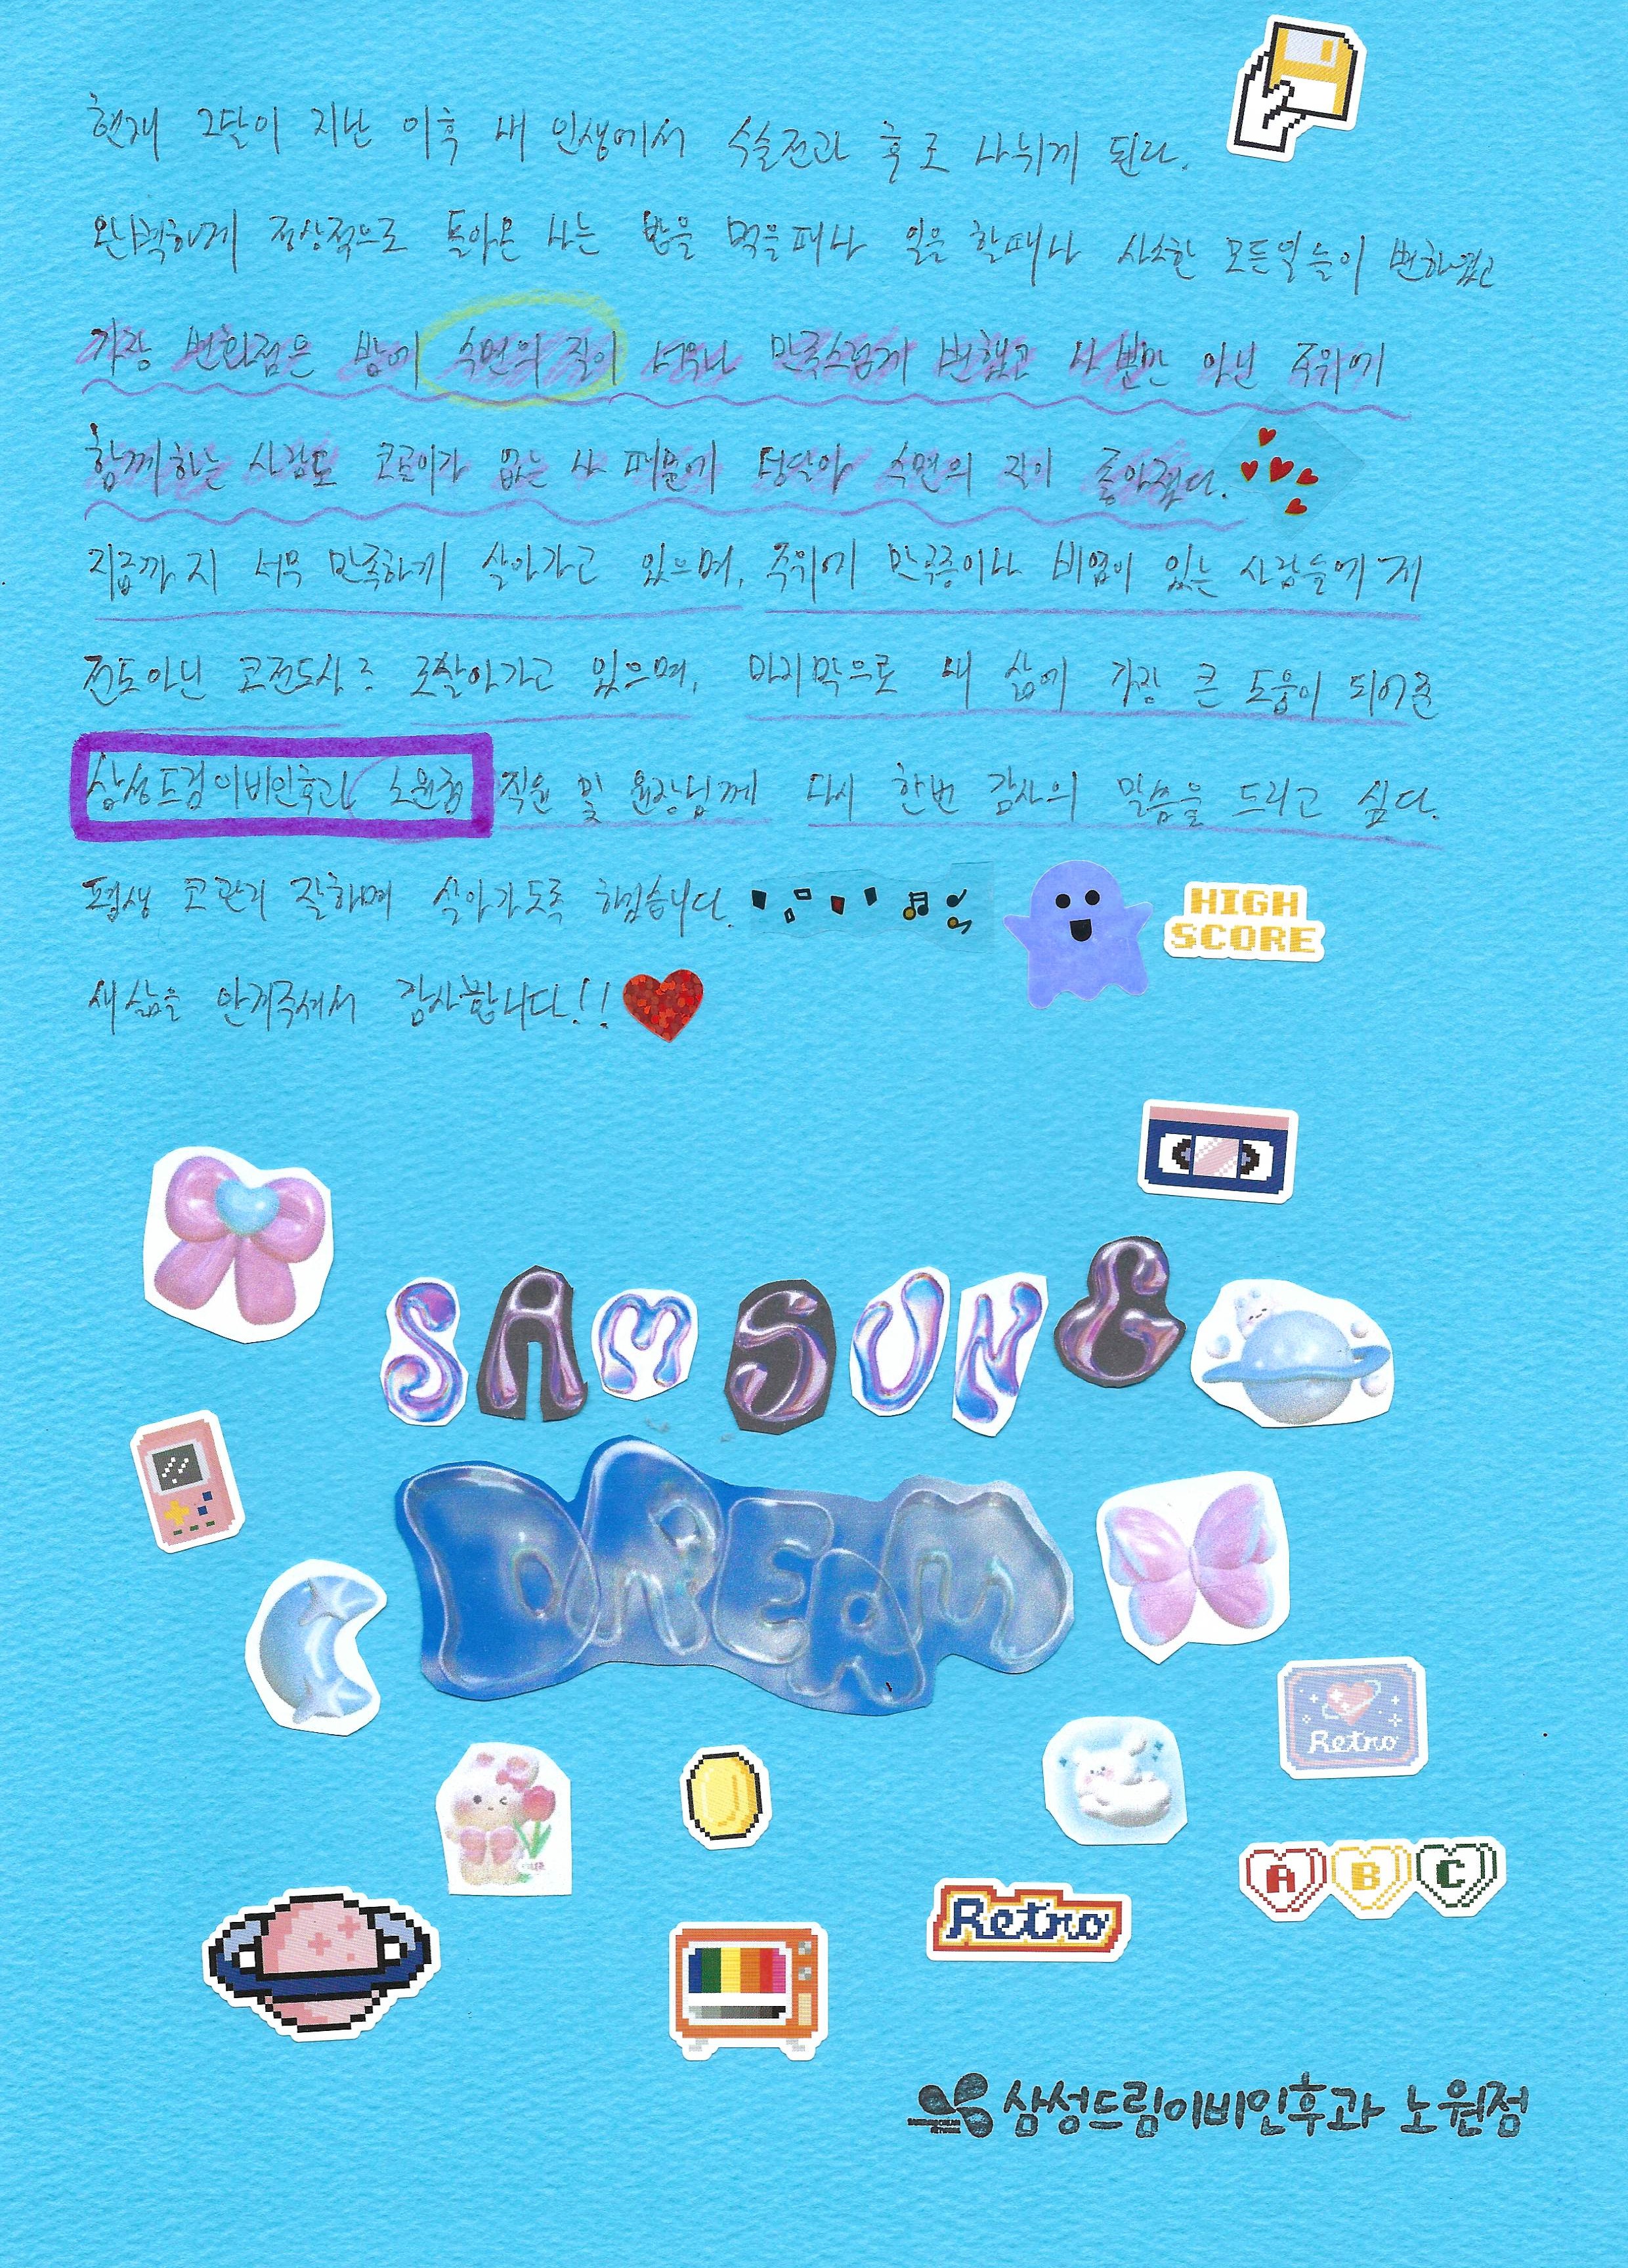 현재 2달이 지난 이후 내 인생에서 수술전과 후로 나뉘게 된다.
완벽하게 정상적으로 돌아온 나는 밥을 먹을때나 일을 할때나 사소한 모든일들이 변하였고
가장 변화점은 밤에 수면의 질이 너무나 만족스럽게 변했고 나 뿐만 아닌 주위에
함께하는 사람도 코골이가 없는 나 때문에 덩달아 수면의 질이 좋아졌다.
지금까지 너무 만족하게 살아가고 있으며, 주위에 만곡증이나 비염이 있는 사람들에게
전도아닌 코전도사?로 살아가고 있으며, 마지막으로 내 삶에 가장 큰 도움이 되어준
삼성드림이비인후과 노원점 직원 및 원장님께 다시 한번 감사의 말씀을 드리고 싶다.
평생 코관리 잘하며 살아가도록 하겠습니다.
HIGH
SCORE
새삶을 안겨주셔서 감사합니다!!
SAMSUNG
DREAM
Retro
A B C
Retro
삼성드림이비인후과 노원점